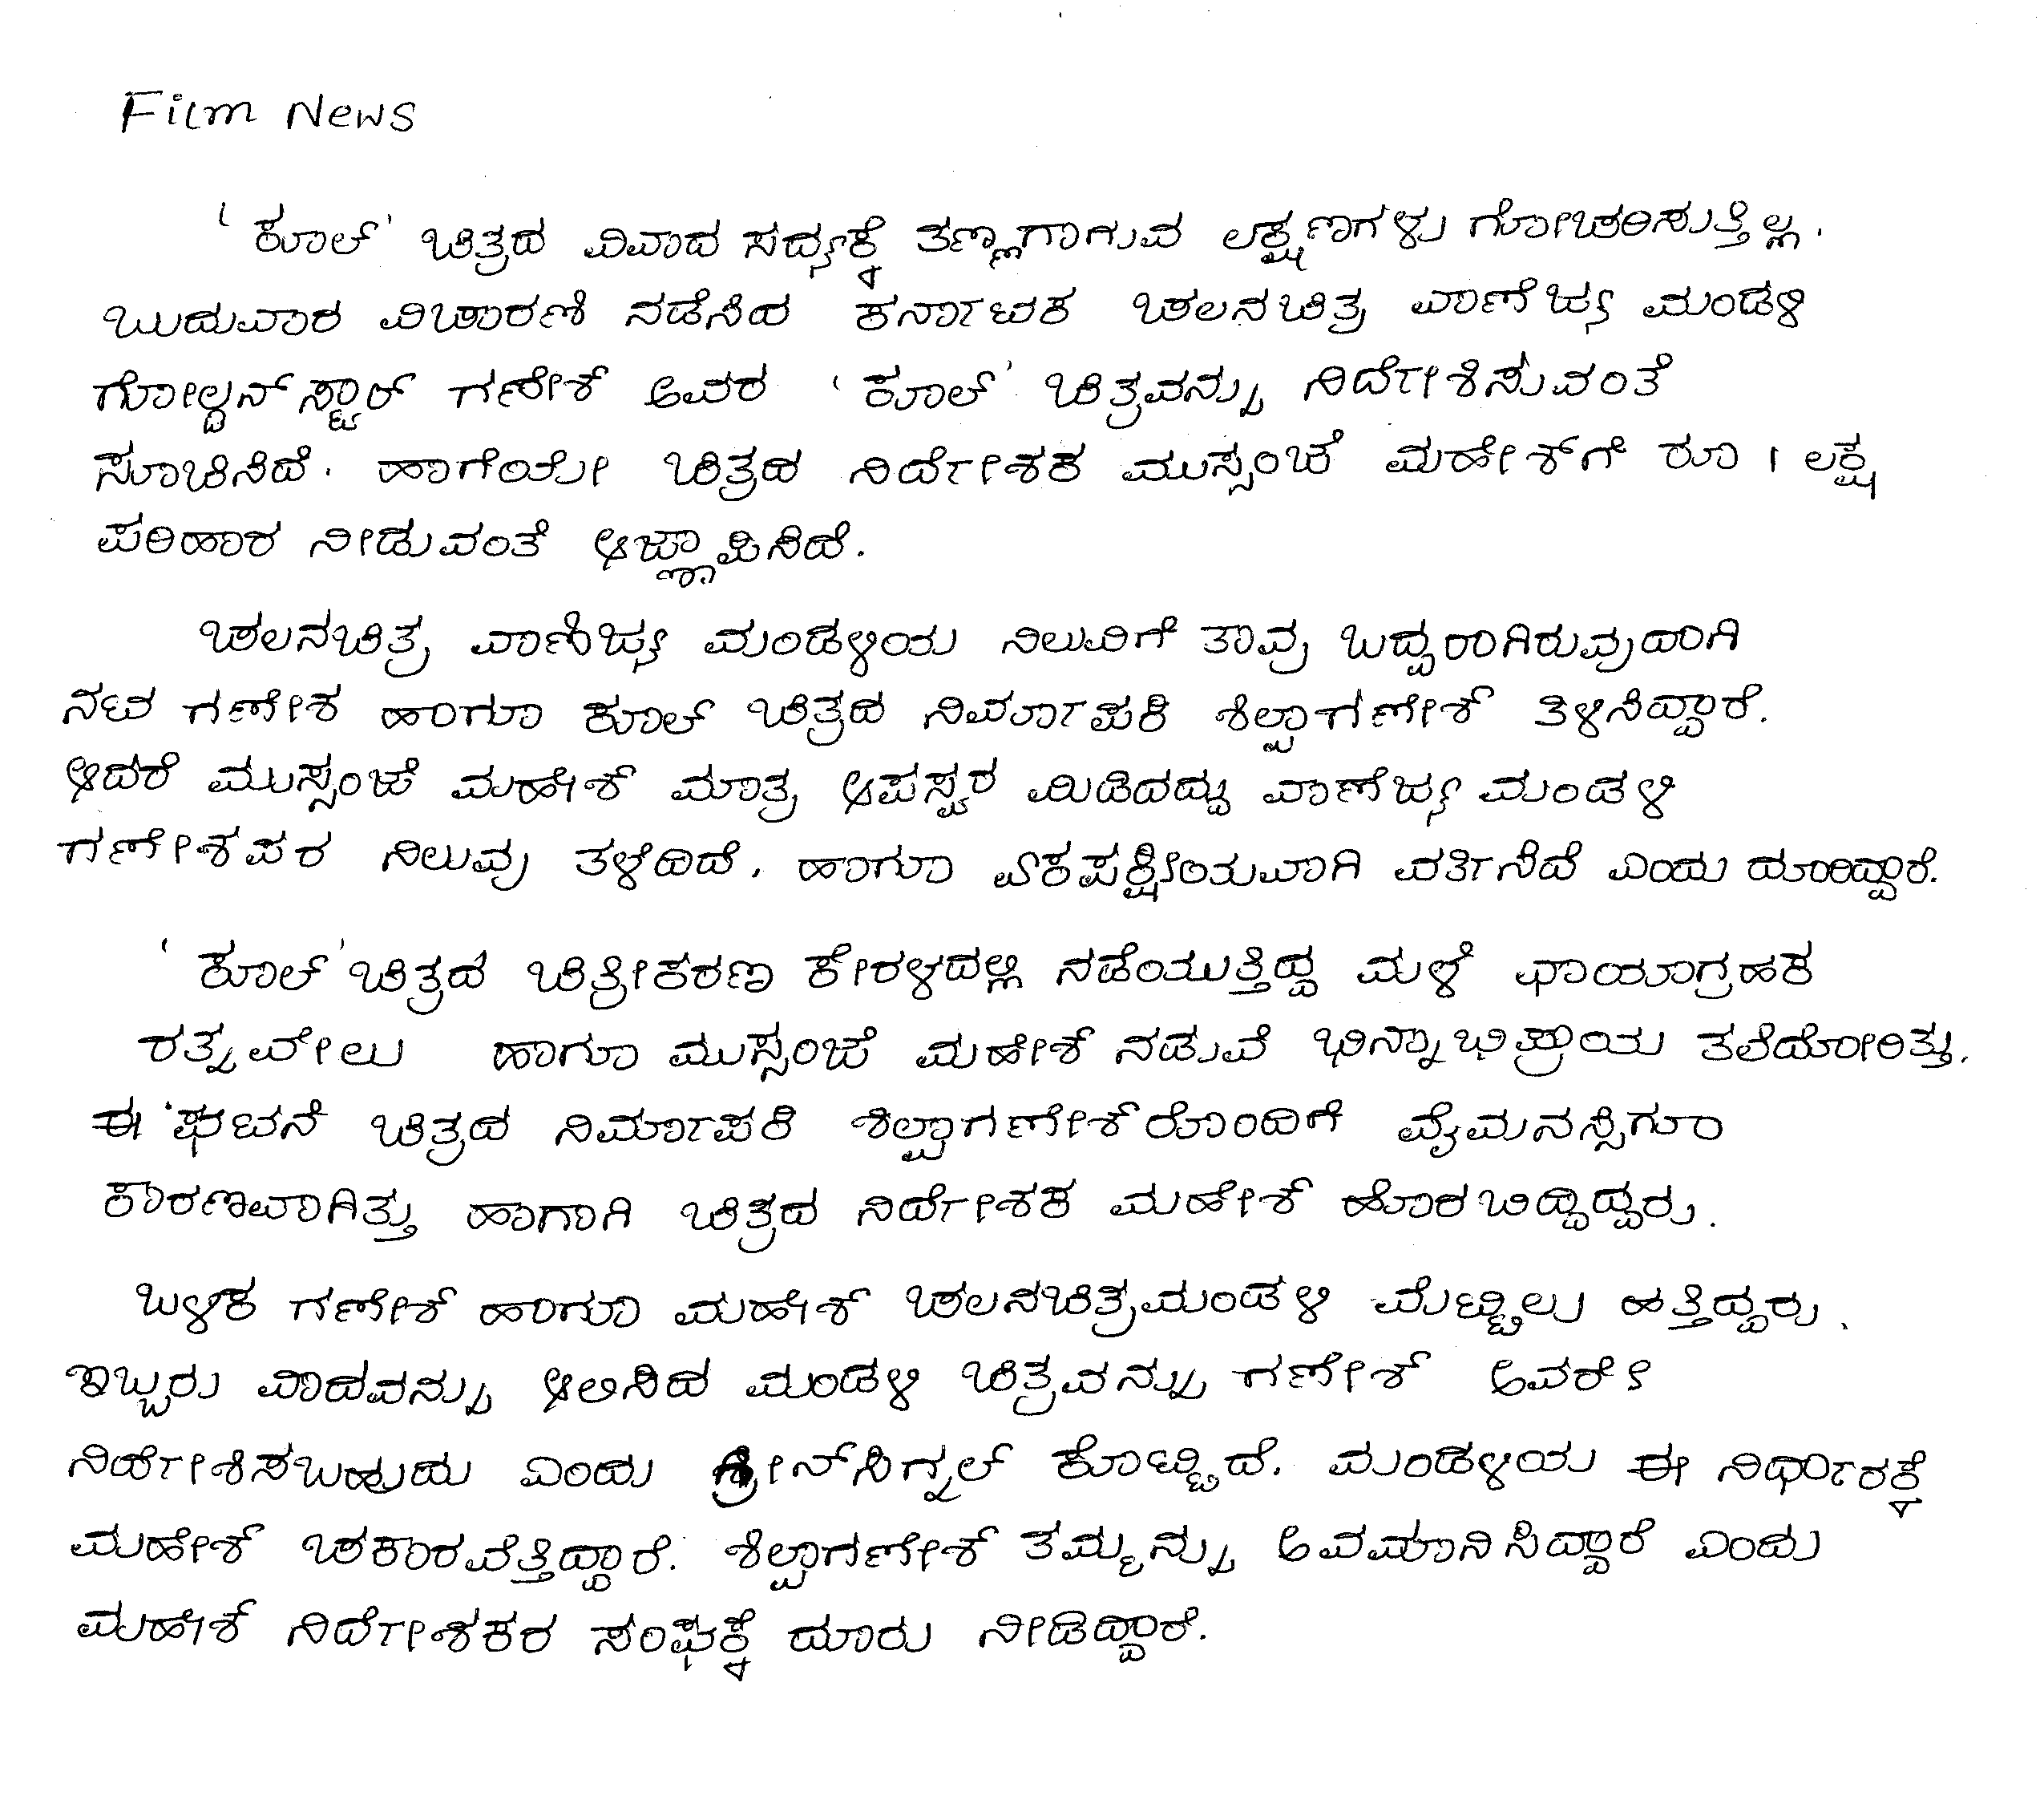 Film News
'ಕೂಲ್' ಚಿತ್ರದ ವಿವಾದ ಸದ್ಯಕ್ಕೆ ತಣ್ಣಗಾಗುವ ಲಕ್ಷಣಗಳು ಗೋಚರಿಸುತ್ತಿಲ್ಲ.
ಬುದುವಾರ ವಿಚಾರಣೆ ನಡೆಸಿದ ಕರ್ನಾಟಕ ಚಲನಚಿತ್ರ ವಾಣಿಜ್ಯ ಮಂಡಳಿ
ಗೋಲ್ಡನ್ ಸ್ಟಾರ್ ಗಣೇಶ್ ಅವರ 'ಕೂಲ್' ಚಿತ್ರವನ್ನು ನಿರ್ದೇಶಿಸುವಂತೆ
ಸೂಚಿಸಿದೆ. ಹಾಗೆಯೇ ಚಿತ್ರದ ನಿರ್ದೇಶಕ ಮುಸ್ಸಂಜೆ ಮಹೇಶ್‌ಗೆ ರೂ 1 ಲಕ್ಷ
ಪರಿಹಾರ ನೀಡುವಂತೆ ಆಜ್ಞಾಪಿಸಿದೆ.
ಚಲನಚಿತ್ರ ವಾಣಿಜ್ಯ ಮಂಡಳಿಯ ನಿಲುವಿಗೆ ತಾವು ಬದ್ದರಾಗಿರುವುದಾಗಿ
ನಟ ಗಣೇಶ ಹಾಗೂ ಕೂಲ್ ಚಿತ್ರದ ನಿರ್ಮಾಪಕಿ ಶಿಲ್ಪಾಗಣೇಶ್ ತಿಳಿಸಿದ್ದಾರೆ.
ಆದರೆ ಮುಸ್ಸಂಜೆ ಮಹೇಶ್ ಮಾತ್ರ ಅಪಸ್ವರ ಮಿಡಿದದ್ದು ವಾಣಿಜ್ಯ ಮಂಡಳಿ
ಗಣೇಶಪರ ನಿಲುವು ತಳೆದಿದೆ. ಹಾಗೂ ಏಕಪಕ್ಷೀಯವಾಗಿ ವರ್ತಿಸಿದೆ ಎಂದು ದೂರಿದ್ದಾರೆ.
'ಕೂಲ್' ಚಿತ್ರದ ಚಿತ್ರೀಕರಣ ಕೇರಳದಲ್ಲಿ ನಡೆಯುತ್ತಿದ್ದ ಮಳೆ ಛಾಯಾಗ್ರಹಕ
ರತ್ನವೇಲು ಹಾಗೂ ಮುಸ್ಸಂಜೆ ಮಹೇಶ್ ನಡುವೆ ಭಿನ್ನಾಭಿಪ್ರಾಯ ತಲೆದೋರಿತ್ತು.
ಈ ಘಟನೆ ಚಿತ್ರದ ನಿರ್ಮಾಪಕಿ ಶಿಲ್ಪಾಗಣೇಶ್‌ರೊಂದಿಗೆ ವೈಮನಸ್ಸಿಗೂ
ಕಾರಣವಾಗಿತ್ತು ಹಾಗಾಗಿ ಚಿತ್ರದ ನಿರ್ದೇಶಕ ಮಹೇಶ್ ಹೊರಬಿದ್ದಿದ್ದರು.
ಬಳಿಕ ಗಣೇಶ್ ಹಾಗೂ ಮಹೇಶ್ ಚಲನಚಿತ್ರಮಂಡಳಿ ಮೆಟ್ಟಿಲು ಹತ್ತಿದ್ದರು.
ಇಬ್ಬರು ವಾದವನ್ನು ಆಲಿಸಿದ ಮಂಡಳಿ ಚಿತ್ರವನ್ನು ಗಣೇಶ್ ಅವರೇ
ನಿರ್ದೇಶಿಸಬಹುದು ಎಂದು ಗ್ರೀನ್‌ಸಿಗ್ನಲ್ ಕೊಟ್ಟಿದೆ. ಮಂಡಳಿಯ ಈ ನಿರ್ಧಾರಕ್ಕೆ
ಮಹೇಶ್ ಚಕಾರವೆತ್ತಿದ್ದಾರೆ. ಶಿಲ್ಪಾಗಣೇಶ್ ತಮ್ಮನ್ನು ಅವಮಾನಿಸಿದ್ದಾರೆ ಎಂದು
ಮಹೇಶ್ ನಿರ್ದೇಶಕರ ಸಂಘಕ್ಕೆ ದೂರು ನೀಡಿದ್ದಾರೆ.